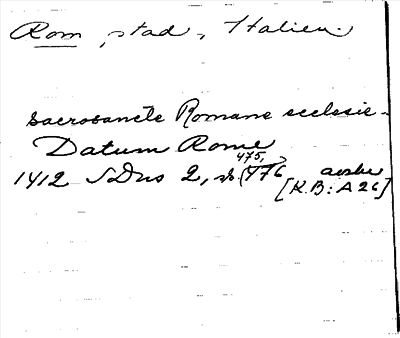 Rom, stad, Italien.
Sacrosancte Romane ecclesie.
Datum Rome
475,
1412 SDns 2, s. 476 avskr
[K.B: A 26]